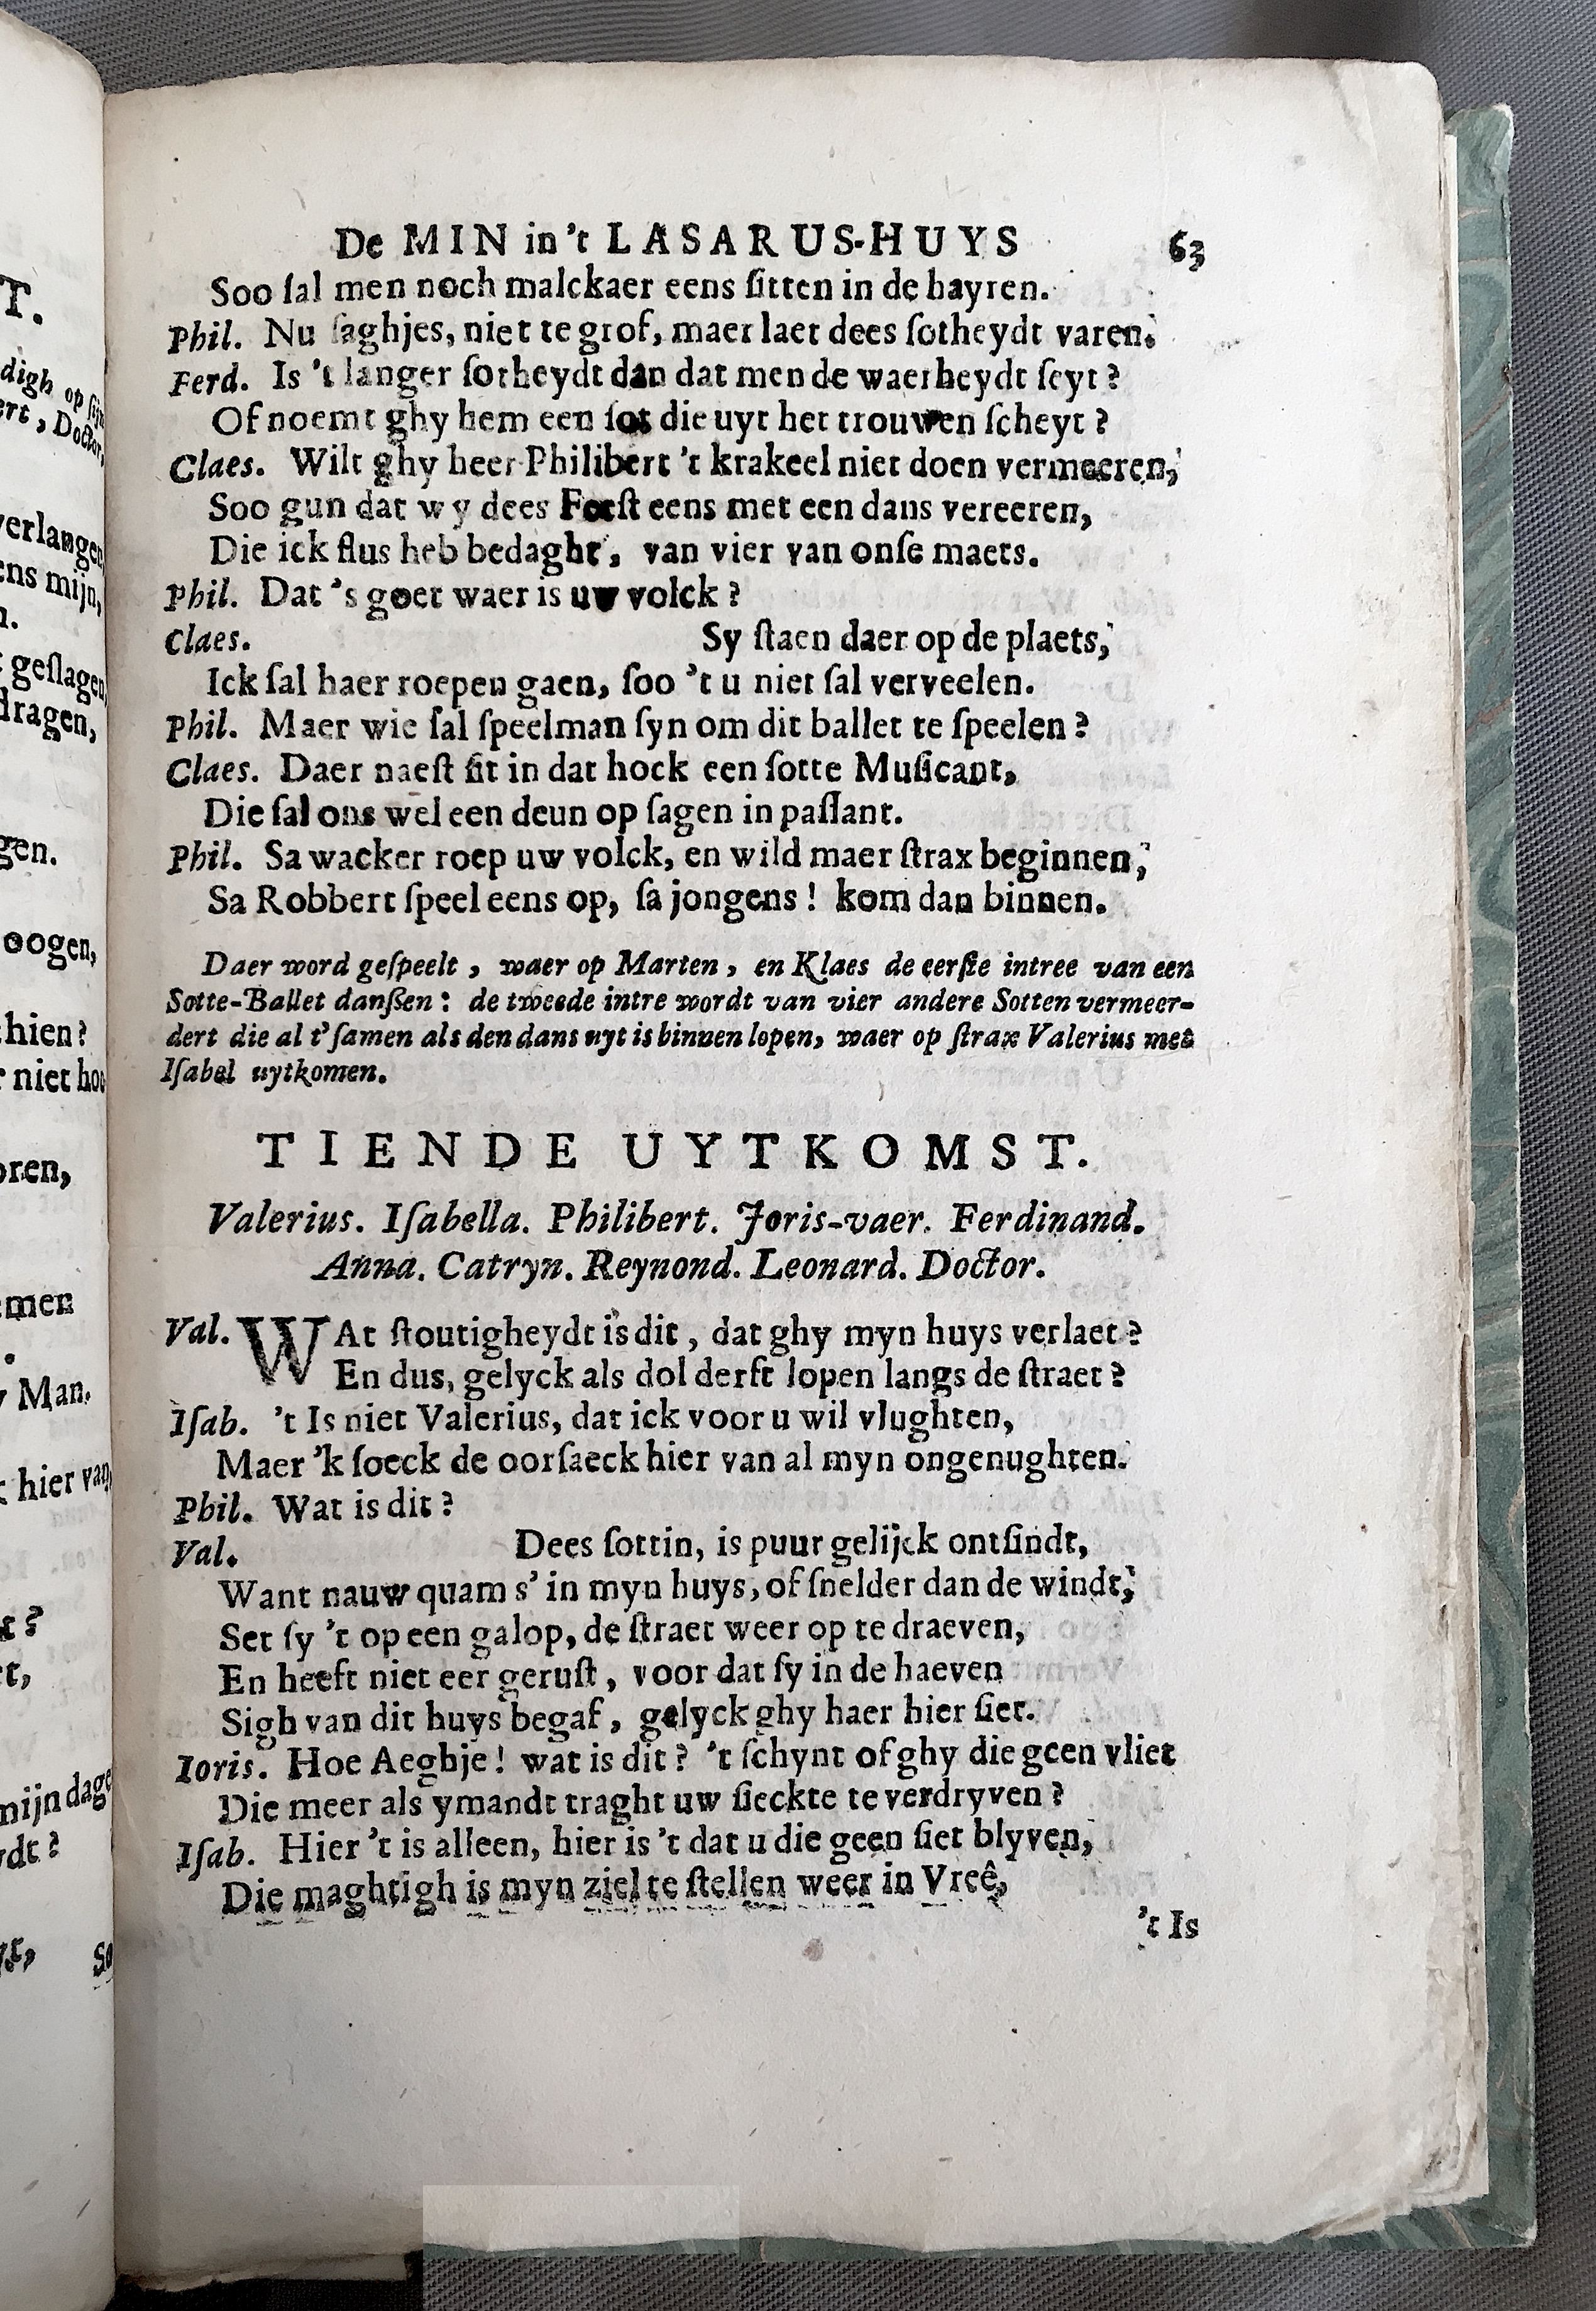 De MIN in 't LASARUS-HUYS 63
Soo ſal men noch malckaer eens ſitten in de hayren.
Phil. Nu ſaghjes, niet te grof, maer laet dees ſotheydt varen.
Ferd. Is 't langer ſotheydt dan dat men de waerheydt ſeyt?
Of noemt ghy hem een ſot die uyt het trouwen ſcheyt?
Claes. Wilt ghy heer Philibert 't krakeel niet doen vermeeren,
Soo gun dat wy dees Feeſt eens met een dans vereeren,
Die ick flus heb bedaght, van vier van onſe maets.
Phil. Dat 's goet waer is uw volck?
Claes. Sy ſtaen daer op de plaets,
Ick ſal haer roepen gaen, ſoo 't u niet ſal verveelen.
Phil. Maer wie ſal ſpeelman ſyn om dit ballet te ſpeelen?
Claes. Daer naeſt ſit in dat hock een ſotte Muſicant,
Die ſal ons wel een deun op ſagen in paſſant.
Phil. Sa wacker roep uw volck, en wild maer ſtrax beginnen,
Sa Robbert ſpeel eens op, ſa jongens! kom dan binnen.
Daer word geſpeelt, waer op Marten, en Klaes de eerſte intree van een
Sotte-Ballet danſsen: de tweede intre wordt van vier andere Sotten vermeer-
dert die al t'ſamen als den dans uyt is binnen lopen, waer op ſtrax Valerius met
Iſabel uytkomen.
TIENDE UYTKOMST.
Valerius. Iſabella. Philibert. Joris-vaer. Ferdinand.
Anna. Catryn. Reynond. Leonard. Doctor.
Val. WAt ſtoutigheydt is dit, dat ghy myn huys verlaet?
En dus, gelyck als dol derft lopen langs de ſtraet?
Iſab. 't Is niet Valerius, dat ick voor u wil vlughten,
Maer 'k ſoeck de oorſaeck hier van al myn ongenughten.
Phil. Wat is dit?
Val. Dees ſottin, is puur gelijck ontſindt,
Want nauw quam s' in myn huys, of ſnelder dan de windt,
Set ſy 't op een galop, de ſtraet weer op te draeven,
En heeft niet eer geruſt, voor dat ſy in de haeven
Sigh van dit huys begaf, gelyck ghy haer hier ſiet.
Ioris. Hoe Aeghje! wat is dit? 't ſchynt of ghy die geen vliet
Die meer als ymandt traght uw ſieckte te verdryven?
Iſab. Hier 't is alleen, hier is 't dat u die geen ſiet blyven,
Die maghtigh is myn ziel te ſtellen weer in Vreê,
't Is